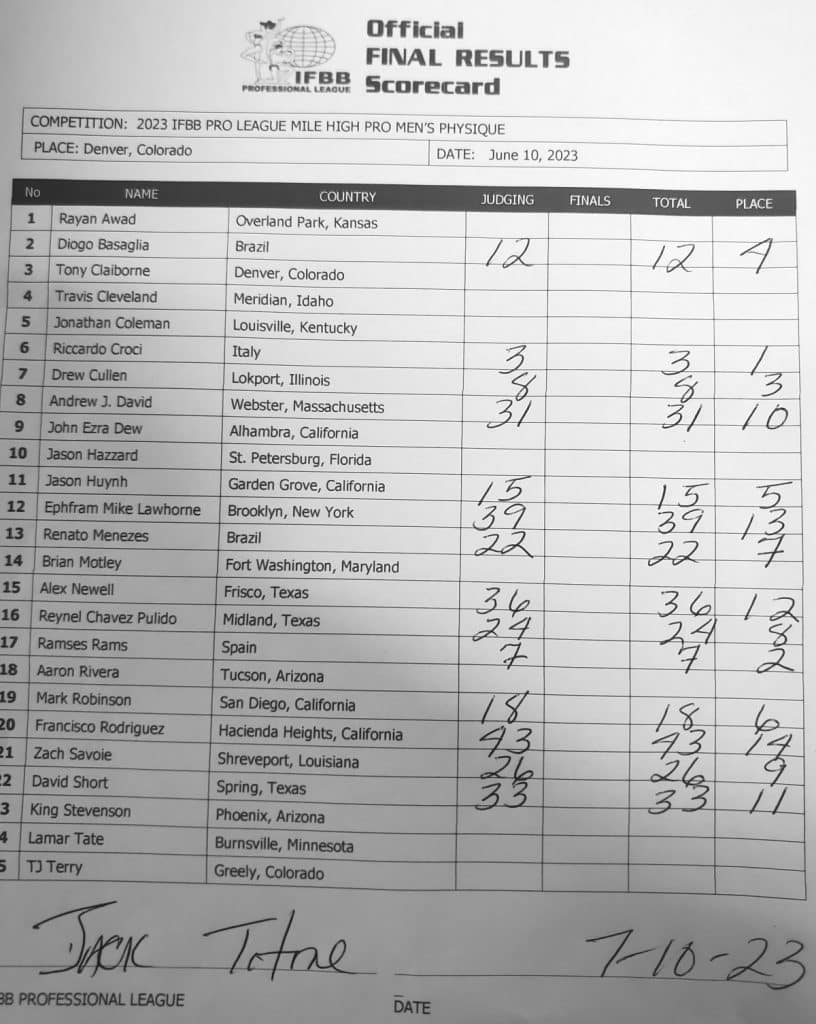 Official
FINAL RESULTS
Scorecard
IFBB
PROFESSIONAL LEAGUE
COMPETITION: 2023 IFBB PRO LEAGUE MILE HIGH PRO MEN'S PHYSIQUE
PLACE: Denver, Colorado DATE: June 10, 2023
No NAME COUNTRY JUDGING FINALS TOTAL PLACE
1 Rayan Awad Overland Park, Kansas
2 Diogo Basaglia Brazil 12 12 4
3 Tony Claiborne Denver, Colorado
4 Travis Cleveland Meridian, Idaho
5 Jonathan Coleman Louisville, Kentucky
6 Riccardo Croci Italy 3 3 1
7 Drew Cullen Lokport, Illinois 8 8 3
8 Andrew J. David Webster, Massachusetts 31 31 10
9 John Ezra Dew Alhambra, California
10 Jason Hazzard St. Petersburg, Florida
11 Jason Huynh Garden Grove, California 15 15 5
12 Ephfram Mike Lawhorne Brooklyn, New York 39 39 13
13 Renato Menezes Brazil 22 22 7
14 Brian Motley Fort Washington, Maryland
15 Alex Newell Frisco, Texas 36 36 12
16 Reynel Chavez Pulido Midland, Texas 24 24 8
17 Ramses Rams Spain 7 7 2
18 Aaron Rivera Tucson, Arizona
19 Mark Robinson San Diego, California 18 18 6
20 Francisco Rodriguez Hacienda Heights, California 43 43 14
21 Zach Savoie Shreveport, Louisiana 26 26 9
2 David Short Spring, Texas 33 33 11
3 King Stevenson Phoenix, Arizona
4 Lamar Tate Burnsville, Minnesota
5 TJ Terry Greely, Colorado
Jack 7-10-23
BB PROFESSIONAL LEAGUE DATE